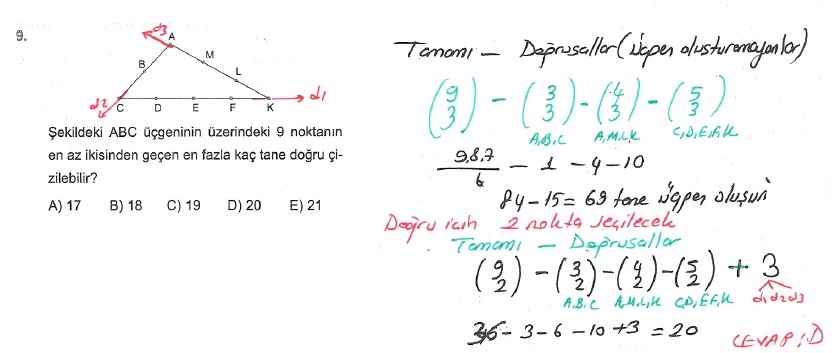 9.
d3
A
M
B
L
d2
C D E F K
d1
Şekildeki ABC üçgeninin üzerindeki 9 noktanın
en az ikisinden geçen en fazla kaç tane doğru çi-
zilebilir?
A) 17 B) 18 C) 19 D) 20 E) 21
Tamamı - Doğrusallar (üçgen oluşturamayanlar)
(9 3) - (3 3) - (4 3) - (5 3)
A,B,C A,M,L,K C,D,E,F,K
9.8.7 / 6 - 1 - 4 - 10
84 - 15 = 69 tane üçgen oluşur
Doğru için 2 nokta seçilecek
Tamamı - Doğrusallar
(9 2) - (3 2) - (4 2) - (5 2) + 3
A,B,C A,M,L,K C,D,E,F,K d1 d2 d3
36 - 3 - 6 - 10 + 3 = 20
CEVAP: D